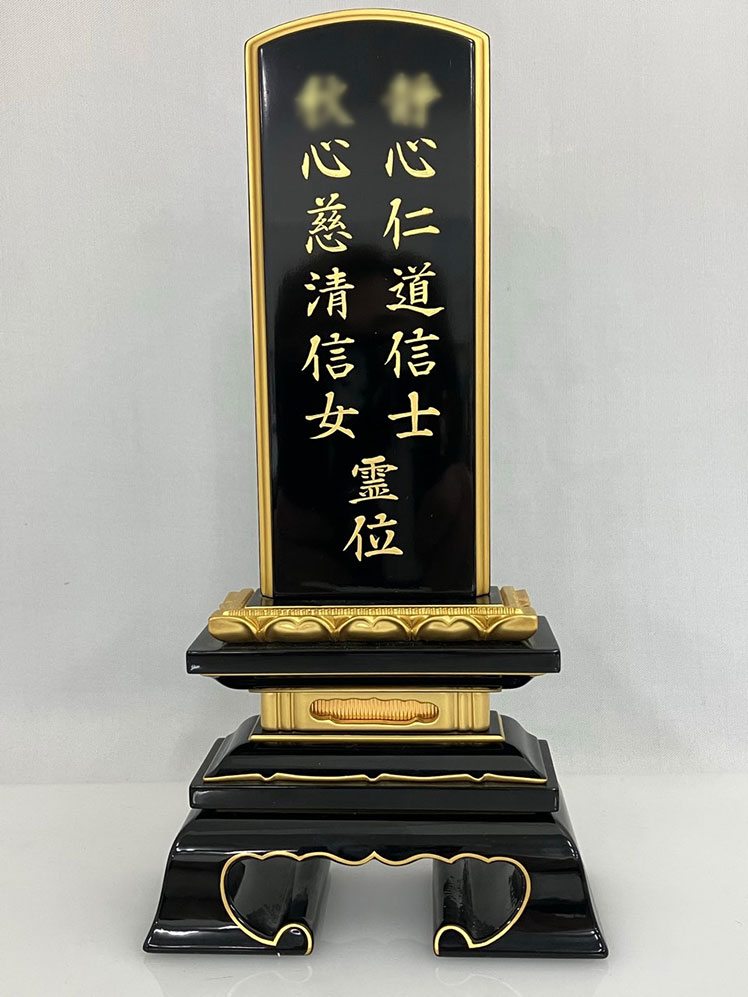 心仁道信士
心慈清信女
霊位